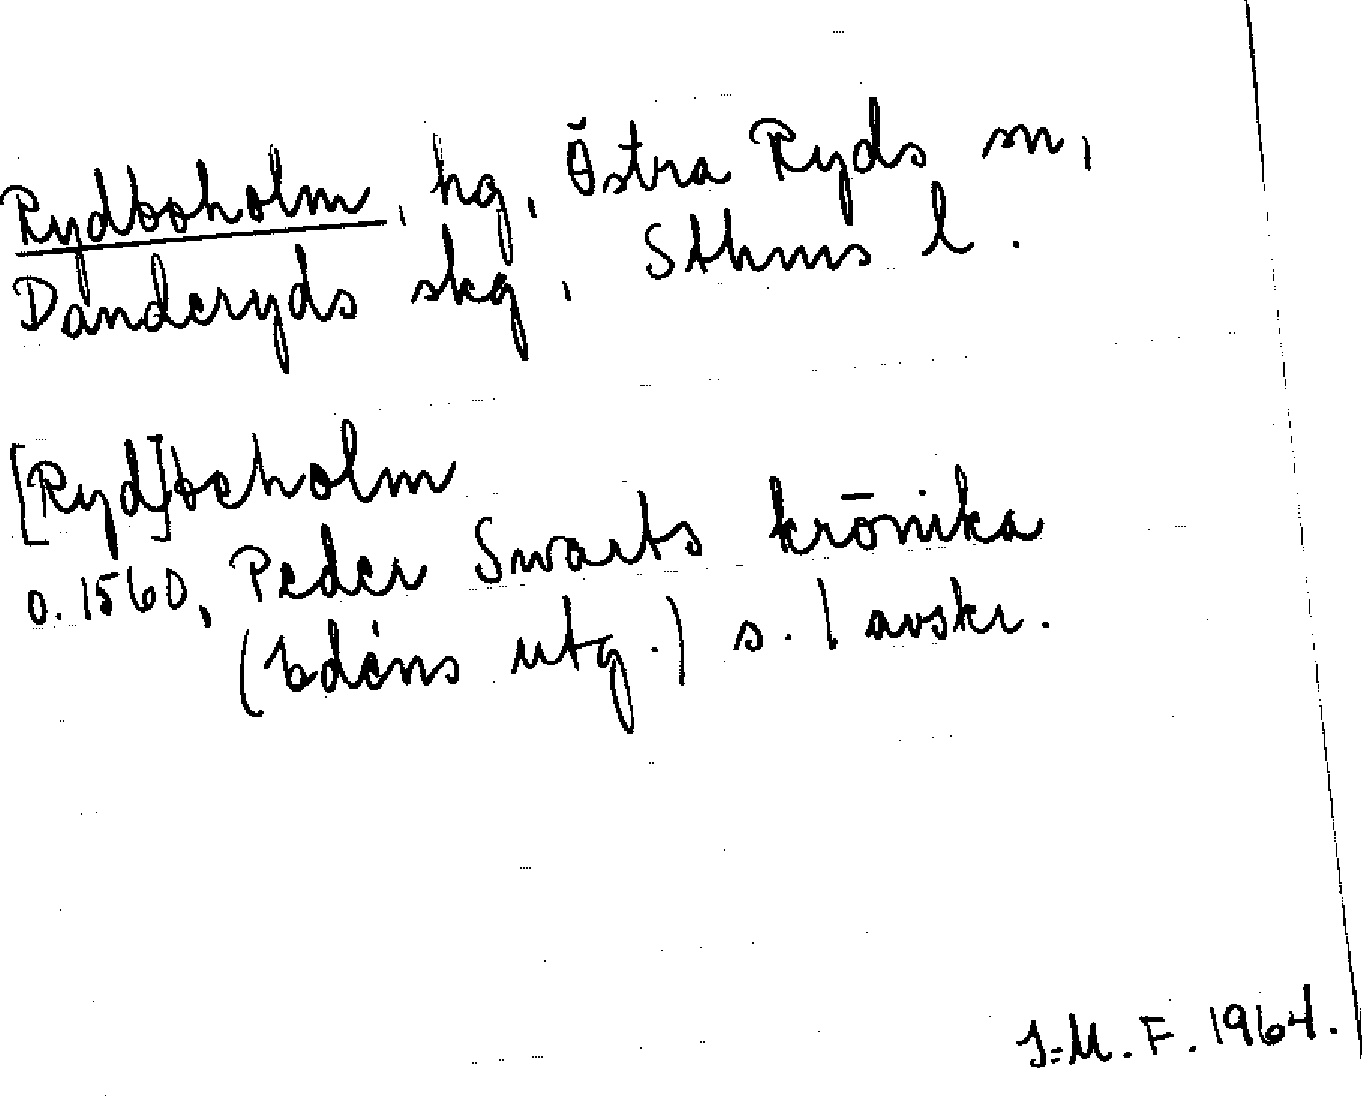 Rydboholm, hg, Östra Ryds sn,
Danderyds skg, Sthms l.
[Ryd]beholm
o. 1560, Peder Swarts krönika
(Edéns utg.) s. 1 avskr.
I=M. F. 1964.